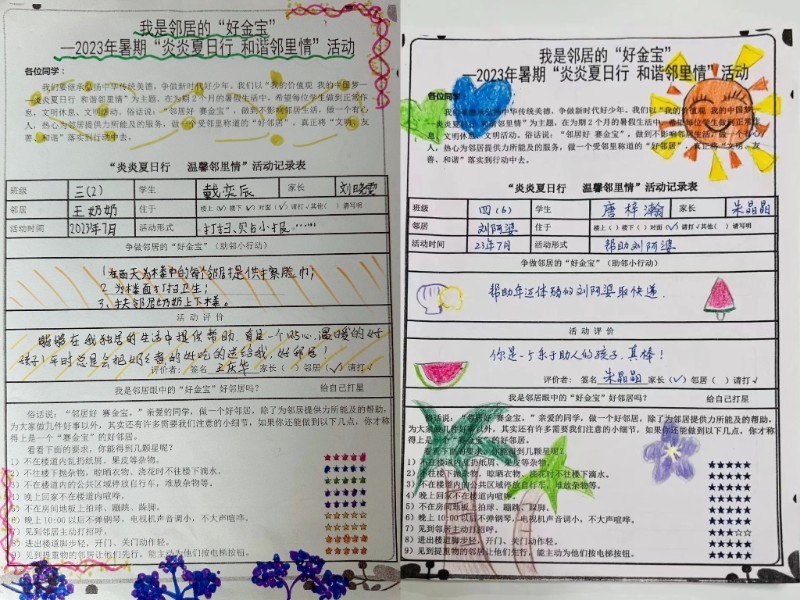 我是邻居的“好金宝”
—2023年暑期“炎炎夏日行 和谐邻里情”活动
各位同学：
我们要继承弘扬中华传统美德，争做新时代好少年，我们以“我的价值观 我的中国梦—
—炎炎夏日行 和谐邻里情”为主题，在为期2个月的暑假生活中，希望每位学生做到正常作
息，文明休息，文明活动。俗话说：“邻居好 赛金宝”，做到不影响邻居生活，做一个有心
人，热心为邻居提供力所能及的服务，做一个受邻里称道的“好邻居”，真正将“文明、友
善、和谐”落实到行动中去。
“炎炎夏日行 温馨邻里情”活动记录表
班级 三(2) 学生 戴奕辰 家长 刘晓雯
邻居 王奶奶 住于 楼上(✓)楼下(✓)对面(✓)请打✓其他( )请写明
活动时间 2023年7月 活动形式 打扫、贴小报……
争做邻居的“好金宝”（助邻小行动）
1、在雨天为楼里的每个邻居提供擦脸巾；
2、为楼面打扫卫生；
3、扶邻居奶奶上下楼。
活动评价
能够在我独居的生活中提供帮助，真是一个贴心、温暖的好
孩子！平时总是会把奶奶煮的好吃的送给我，好邻居！
评价者：签名 王庆华 家长( ) 邻居( ) 请打✓
我是邻居眼中的“好金宝”好邻居吗？ 给自己打星
俗话说：“邻居好 赛金宝。”亲爱的同学，做一个好邻居，除了为邻居提供力所能及的帮助，
为大家做几件好事以外，其实还有许多需要我们注意的小细节，如果你还能做到以下几点，你才称
得上是一个“赛金宝”的好邻居。
看看下面的要求，你能得到几颗星呢？
1）不在楼道内乱扔纸屑，果皮等杂物。 ★★★★★
2）不往楼下抛杂物，晾晒衣物、浇花时不往楼下滴水。 ★★★★★
3）不在楼道内的公共区域停放自行车，堆放杂物等。 ★★★★★
4）晚上回家不在楼道内喧哗。 ★★★★★
5）不在房间地板上拍球，蹦跳，踢脚。 ★★★★★
6）晚上10:00以后不弹钢琴，电视机声音调小，不大声喧哗。
7）见到邻居主动打招呼。
8）进出楼道脚步轻，开门、关门动作轻。
9）见到提重物的邻居让他们先行，能主动为他们按电梯按钮。
我是邻居的“好金宝”
—2023年暑期“炎炎夏日行 和谐邻里情”活动
各位同学：
我们要继承弘扬中华传统美德，争做新时代好少年，我们以“我的价值观 我的中国梦—
—炎炎夏日行 和谐邻里情”为主题，在为期2个月的暑假生活中，希望每位学生做到正常作
息，文明休息，文明活动。俗话说：“邻居好 赛金宝”，做到不影响邻居生活，做一个有心
人，热心为邻居提供力所能及的服务，做一个受邻里称道的“好邻居”，真正将“文明、友
善、和谐”落实到行动中去。
“炎炎夏日行 温馨邻里情”活动记录表
班级 四(6) 学生 唐梓瀚 家长 朱晶晶
邻居 刘阿婆 住于 楼上( )楼下( )对面(✓)请打✓其他( )请写明
活动时间 23年7月 活动形式 帮助刘阿婆
争做邻居的“好金宝”（助邻小行动）
帮助年迈体弱的刘阿婆取快递。
活动评价
你是一个乐于助人的孩子，真棒！
评价者：签名 朱晶晶 家长(✓) 邻居( ) 请打✓
我是邻居眼中的“好金宝”好邻居吗？ 给自己打星
俗话说：“邻居好 赛金宝。”亲爱的同学，做一个好邻居，除了为邻居提供力所能及的帮助，
为大家做几件好事以外，其实还有许多需要我们注意的小细节，如果你还能做到以下几点，你才称
得上是一个“赛金宝”的好邻居。
看看下面的要求，你能得到几颗星呢？
1）不在楼道内乱扔纸屑，果皮等杂物。
2）不往楼下抛杂物，晾晒衣物、浇花时不往楼下滴水。
3）不在楼道内的公共区域停放自行车，堆放杂物等。
4）晚上回家不在楼道内喧哗。
5）不在房间地板上拍球，蹦跳，踢脚。
6）晚上10:00以后不弹钢琴，电视机声音调小，不大声喧哗。
7）见到邻居主动打招呼。
8）进出楼道脚步轻，开门、关门动作轻。
9）见到提重物的邻居让他们先行，能主动为他们按电梯按钮。